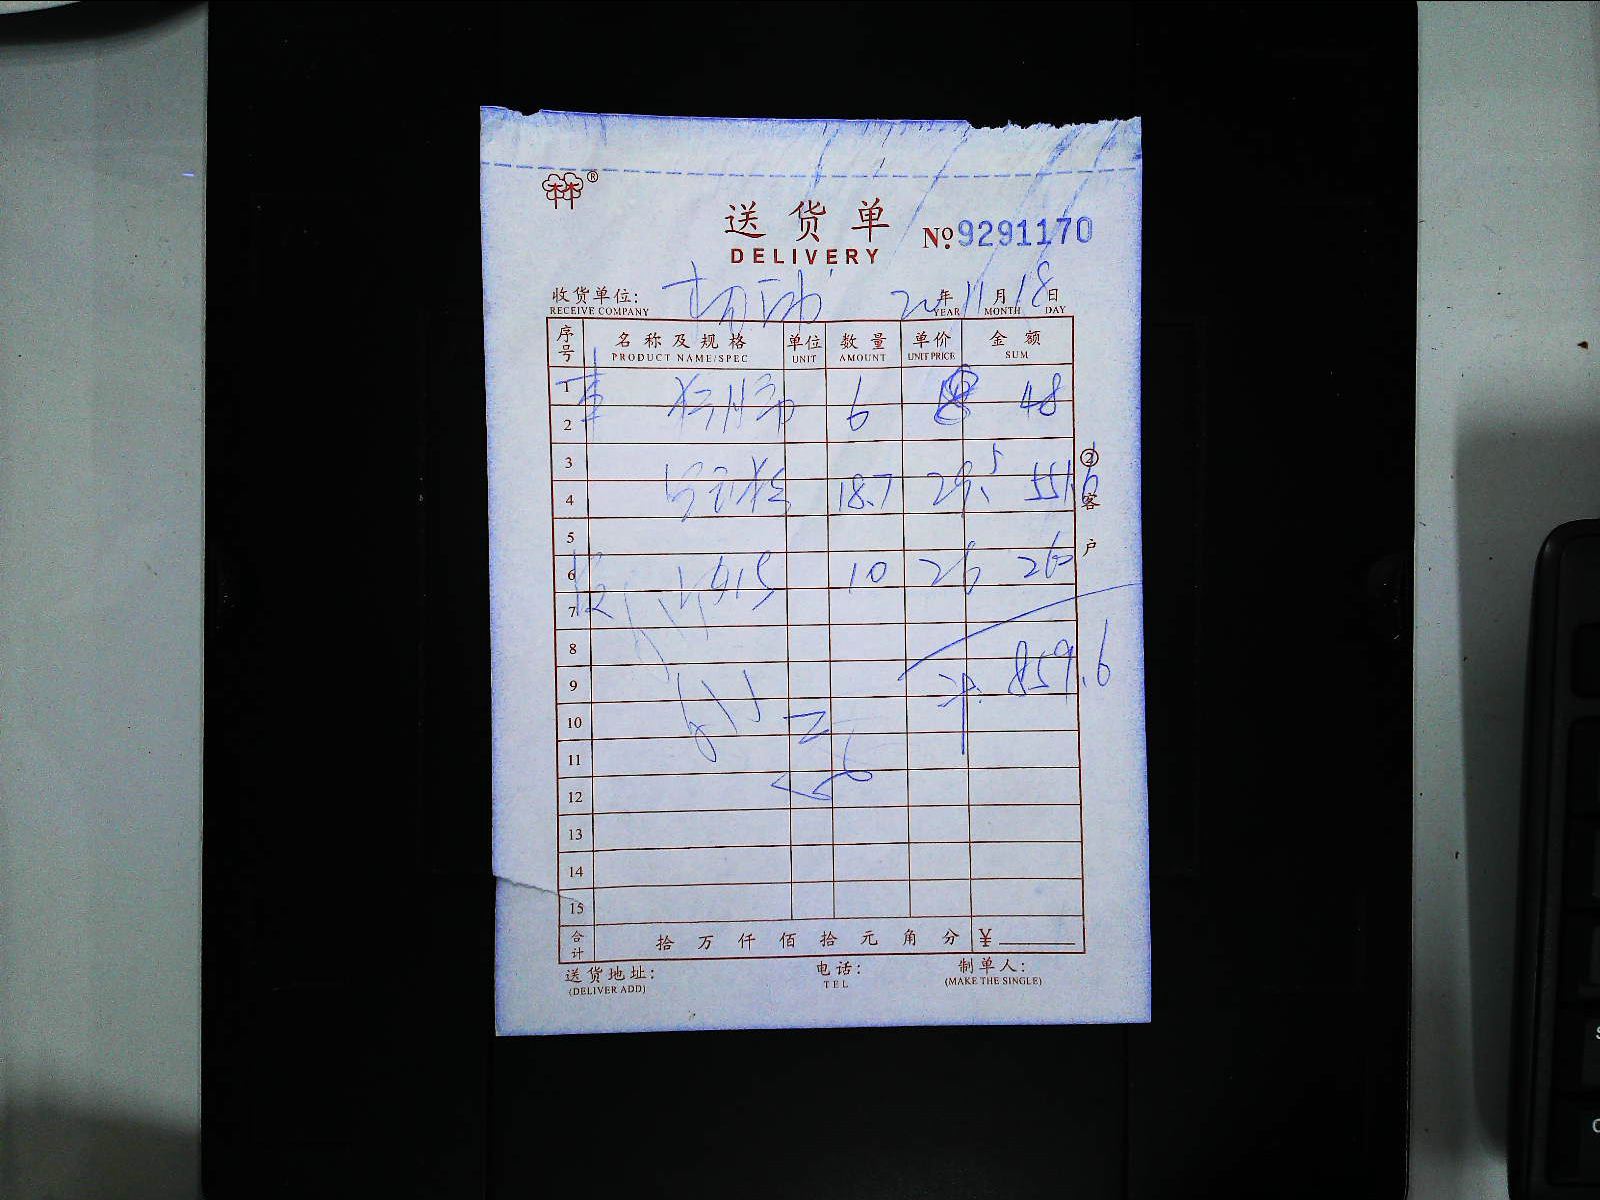 送货单
DELIVERY
No. 9291170
收货单位:
RECEIVE COMPANY
20年11月18日
YEAR MONTH DAY
序号 名称及规格 单位 数量 单价 金额
PRODUCT NAME/SPEC UNIT AMOUNT UNIT PRICE SUM
1 6 48
2
3
4 18.7 29.5 551.6
5
6 10 26 260
7
8
9 859.6
10
11
12
13
14
15
合计 拾 万 仟 佰 拾 元 角 分 ¥
②客户
送货地址: 电话: 制单人:
(DELIVER ADD) TEL (MAKE THE SINGLE)